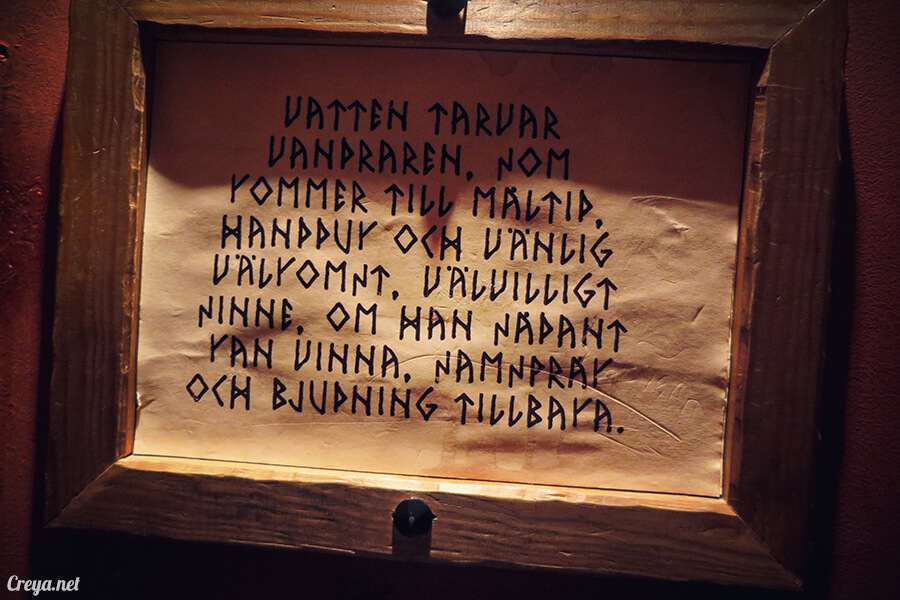 VATTEN TARVAR
VANDRAREN, SOM
KOMMER TILL MÅLTID,
HANDDUK OCH VÄNLIG
VÄLKOMST, VÄLVILLIGT
SINNE, OM HAN SÅDANT
KAN VINNA, SAMSPRÅK
OCH BJUDNING TILLBAKA.
Creya.net